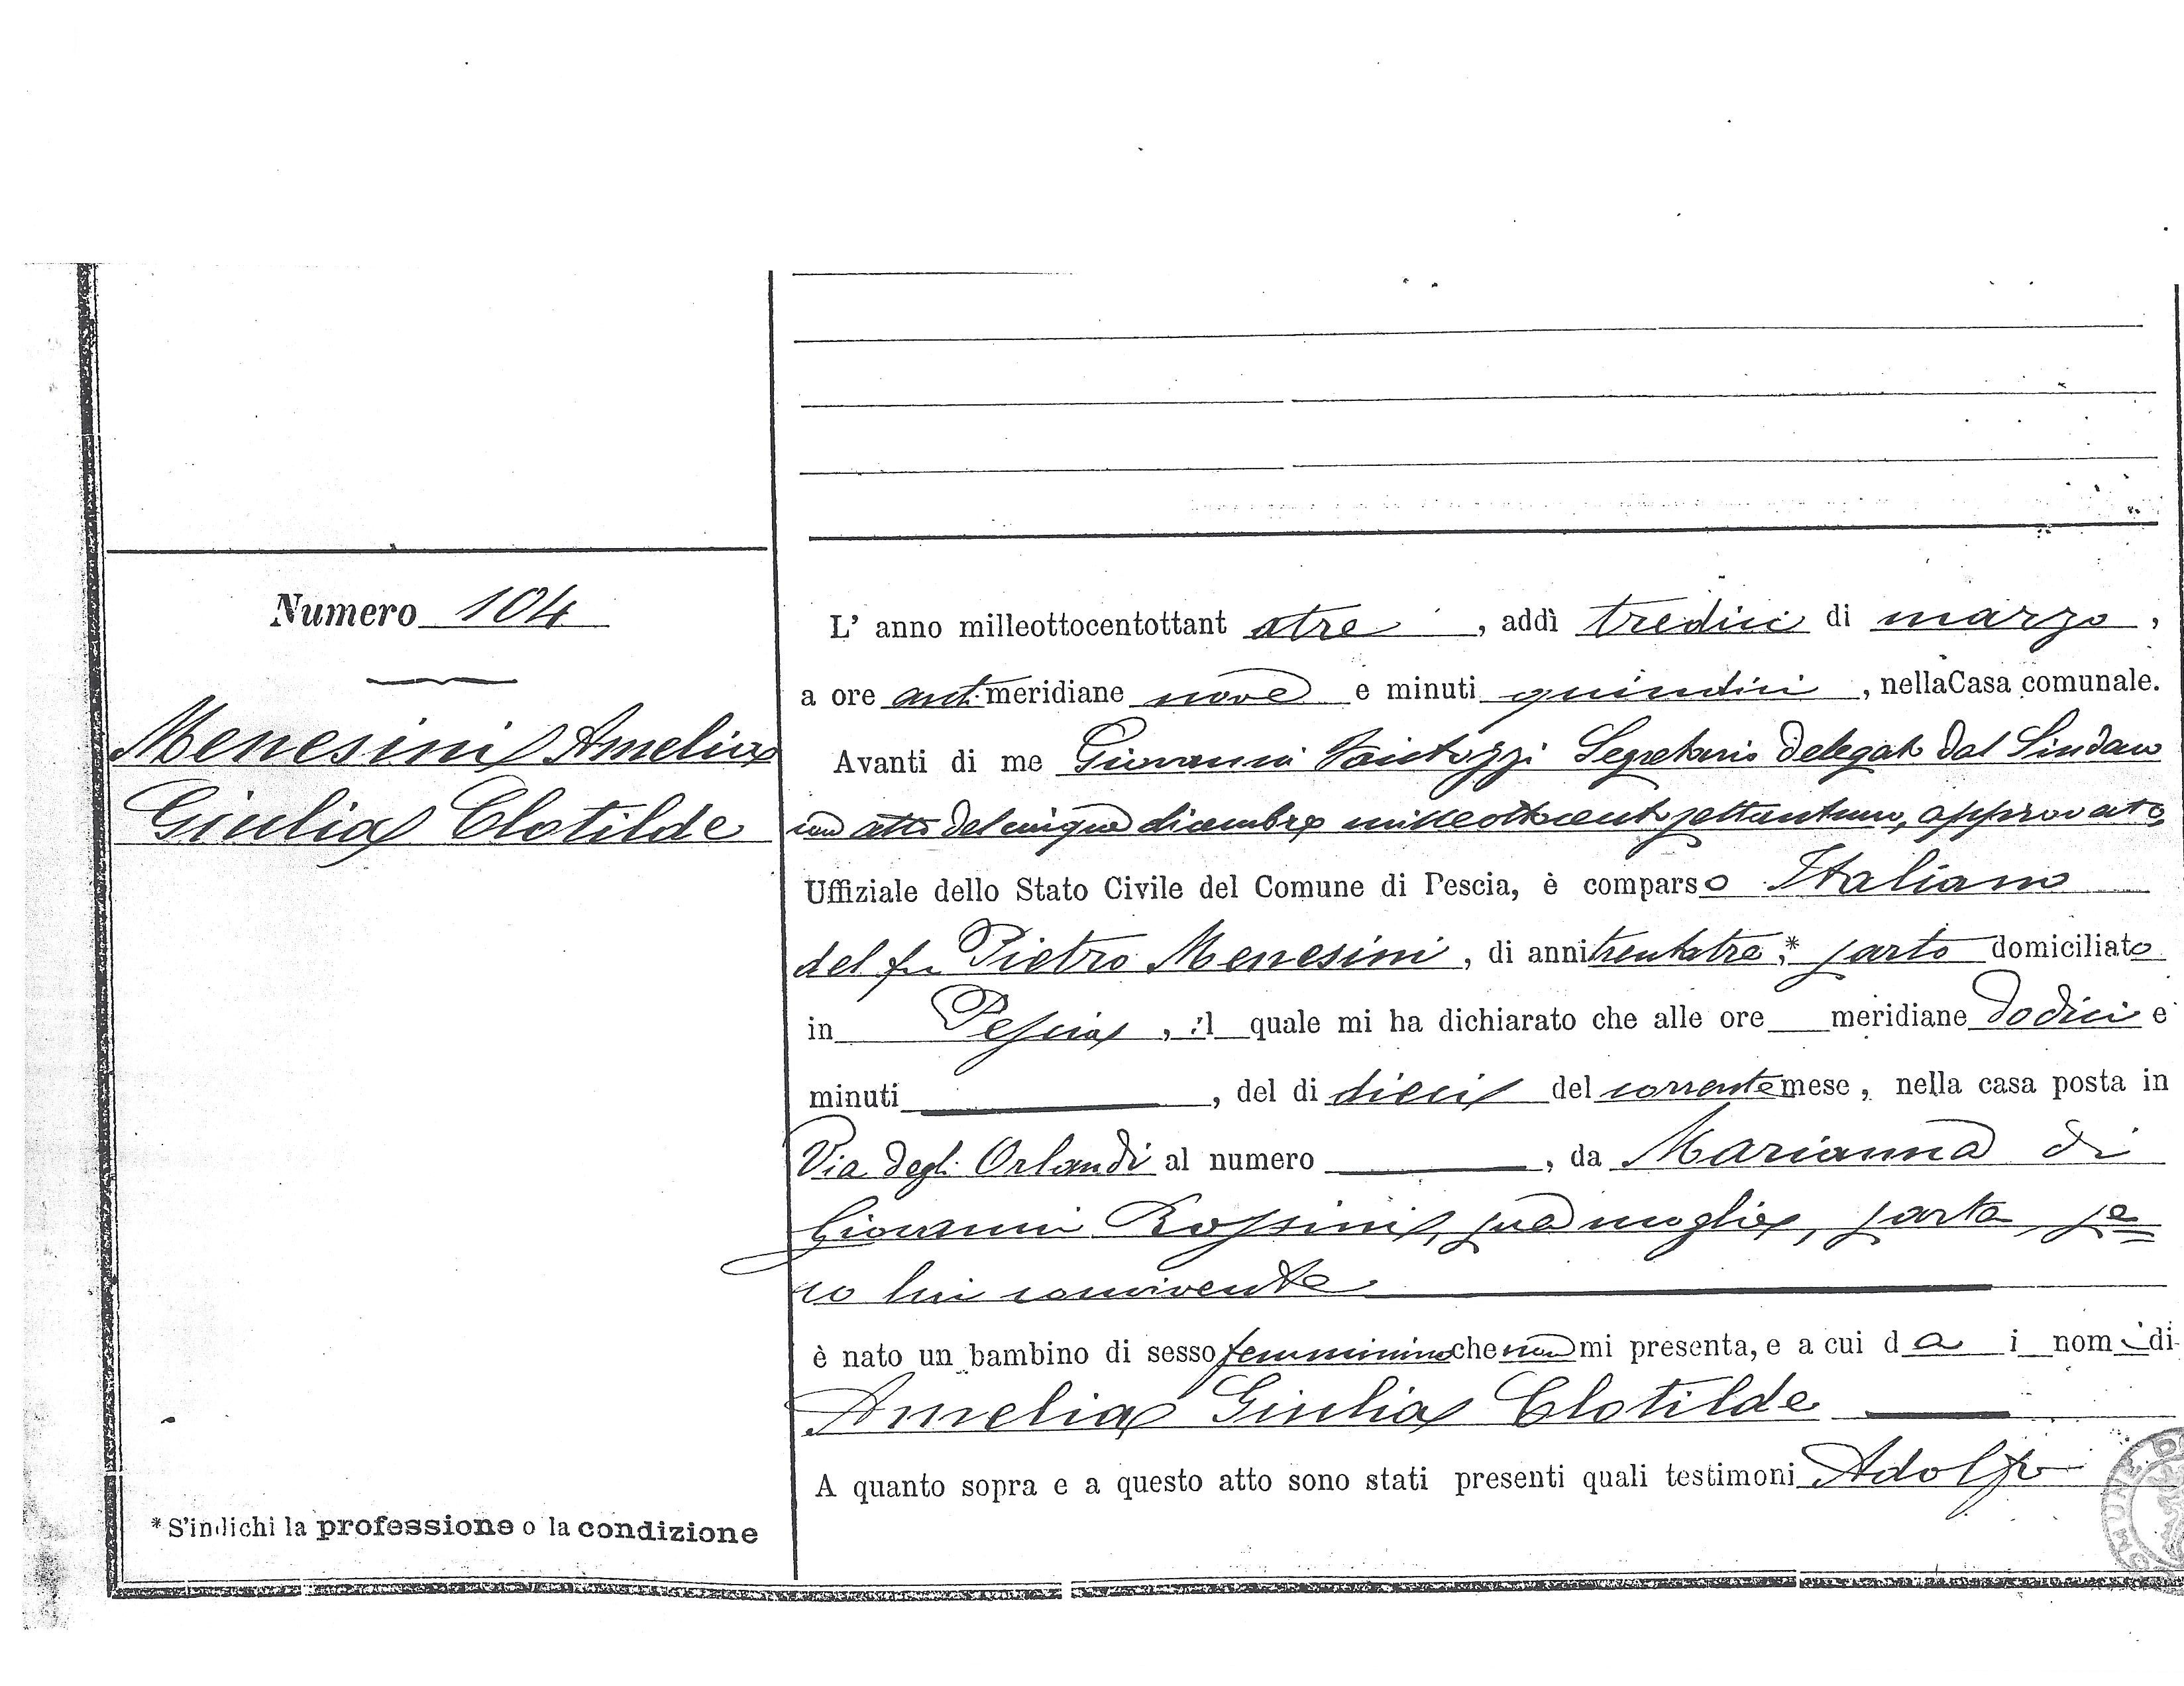 Numero 104
Menesini Amelia
Giulia Clotilde
* S'indichi la professione o la condizione
L' anno milleottocentottant atre, addì tredici di marzo,
a ore anti meridiane nove e minuti quindici, nella Casa comunale.
Avanti di me Giovanni Segretario delegato dal Sindaco
con atto del cinque dicembre millottocento settantuno, approvato,
Uffiziale dello Stato Civile del Comune di Pescia, è comparso Italiano
del fu Pietro Menesini, di anni trentatre, * sarto domiciliato
in Pescia, il quale mi ha dichiarato che alle ore meridiane dodici e
minuti , del dì dieci del corrente mese, nella casa posta in
Via degli Orlandi al numero , da Marianna di
Giovanni Rossini, sua moglie, sarta, se=
co lui convivente
è nato un bambino di sesso femminino che non mi presenta, e a cui d a i nom i di
Amelia Giulia Clotilde
A quanto sopra e a questo atto sono stati presenti quali testimoni Adolfo
COMUNE D